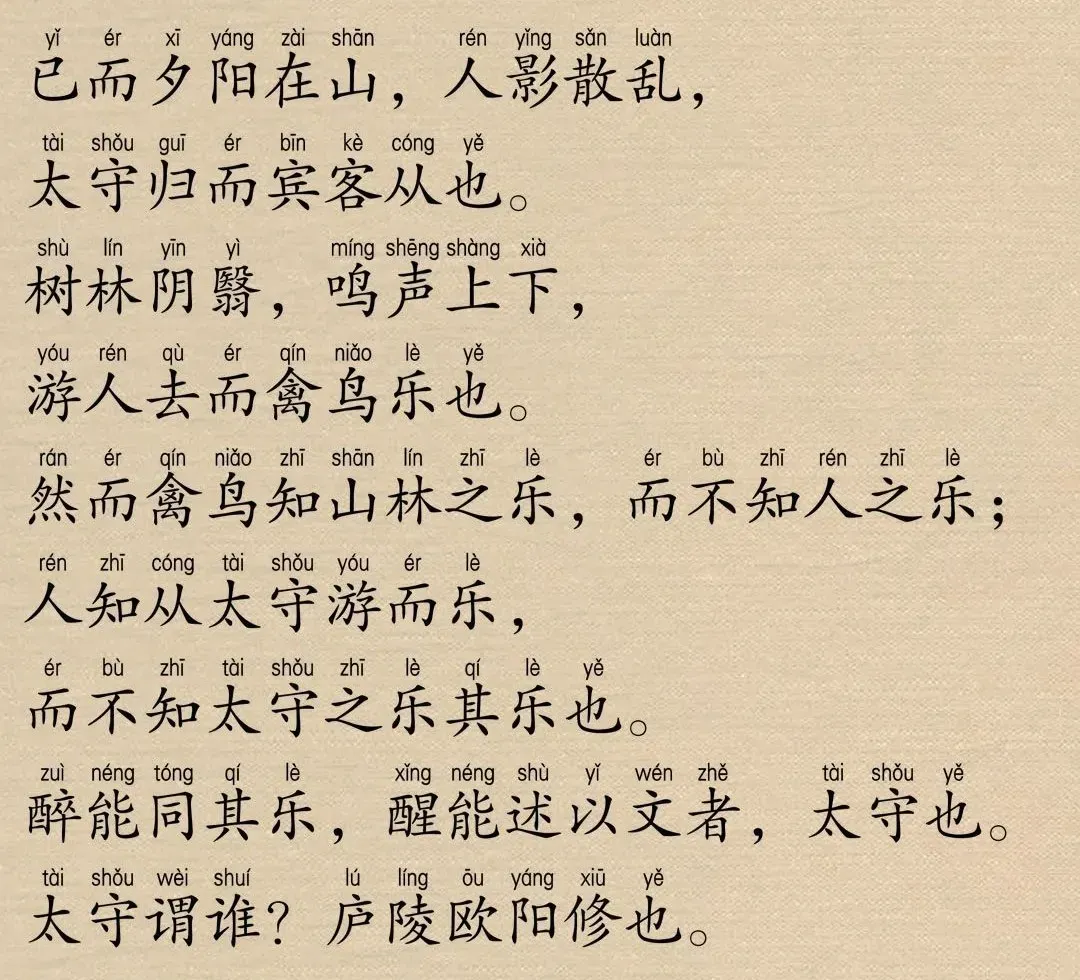 yǐ ér xī yáng zài shān rén yǐng sǎn luàn
已而夕阳在山，人影散乱，
tài shǒu guī ér bīn kè cóng yě
太守归而宾客从也。
shù lín yīn yì míng shēng shàng xià
树林阴翳，鸣声上下，
yóu rén qù ér qín niǎo lè yě
游人去而禽鸟乐也。
rán ér qín niǎo zhī shān lín zhī lè ér bù zhī rén zhī lè
然而禽鸟知山林之乐，而不知人之乐；
rén zhī cóng tài shǒu yóu ér lè
人知从太守游而乐，
ér bù zhī tài shǒu zhī lè qí lè yě
而不知太守之乐其乐也。
zuì néng tóng qí lè xǐng néng shù yǐ wén zhě tài shǒu yě
醉能同其乐，醒能述以文者，太守也。
tài shǒu wèi shuí lú líng ōu yáng xiū yě
太守谓谁？庐陵欧阳修也。